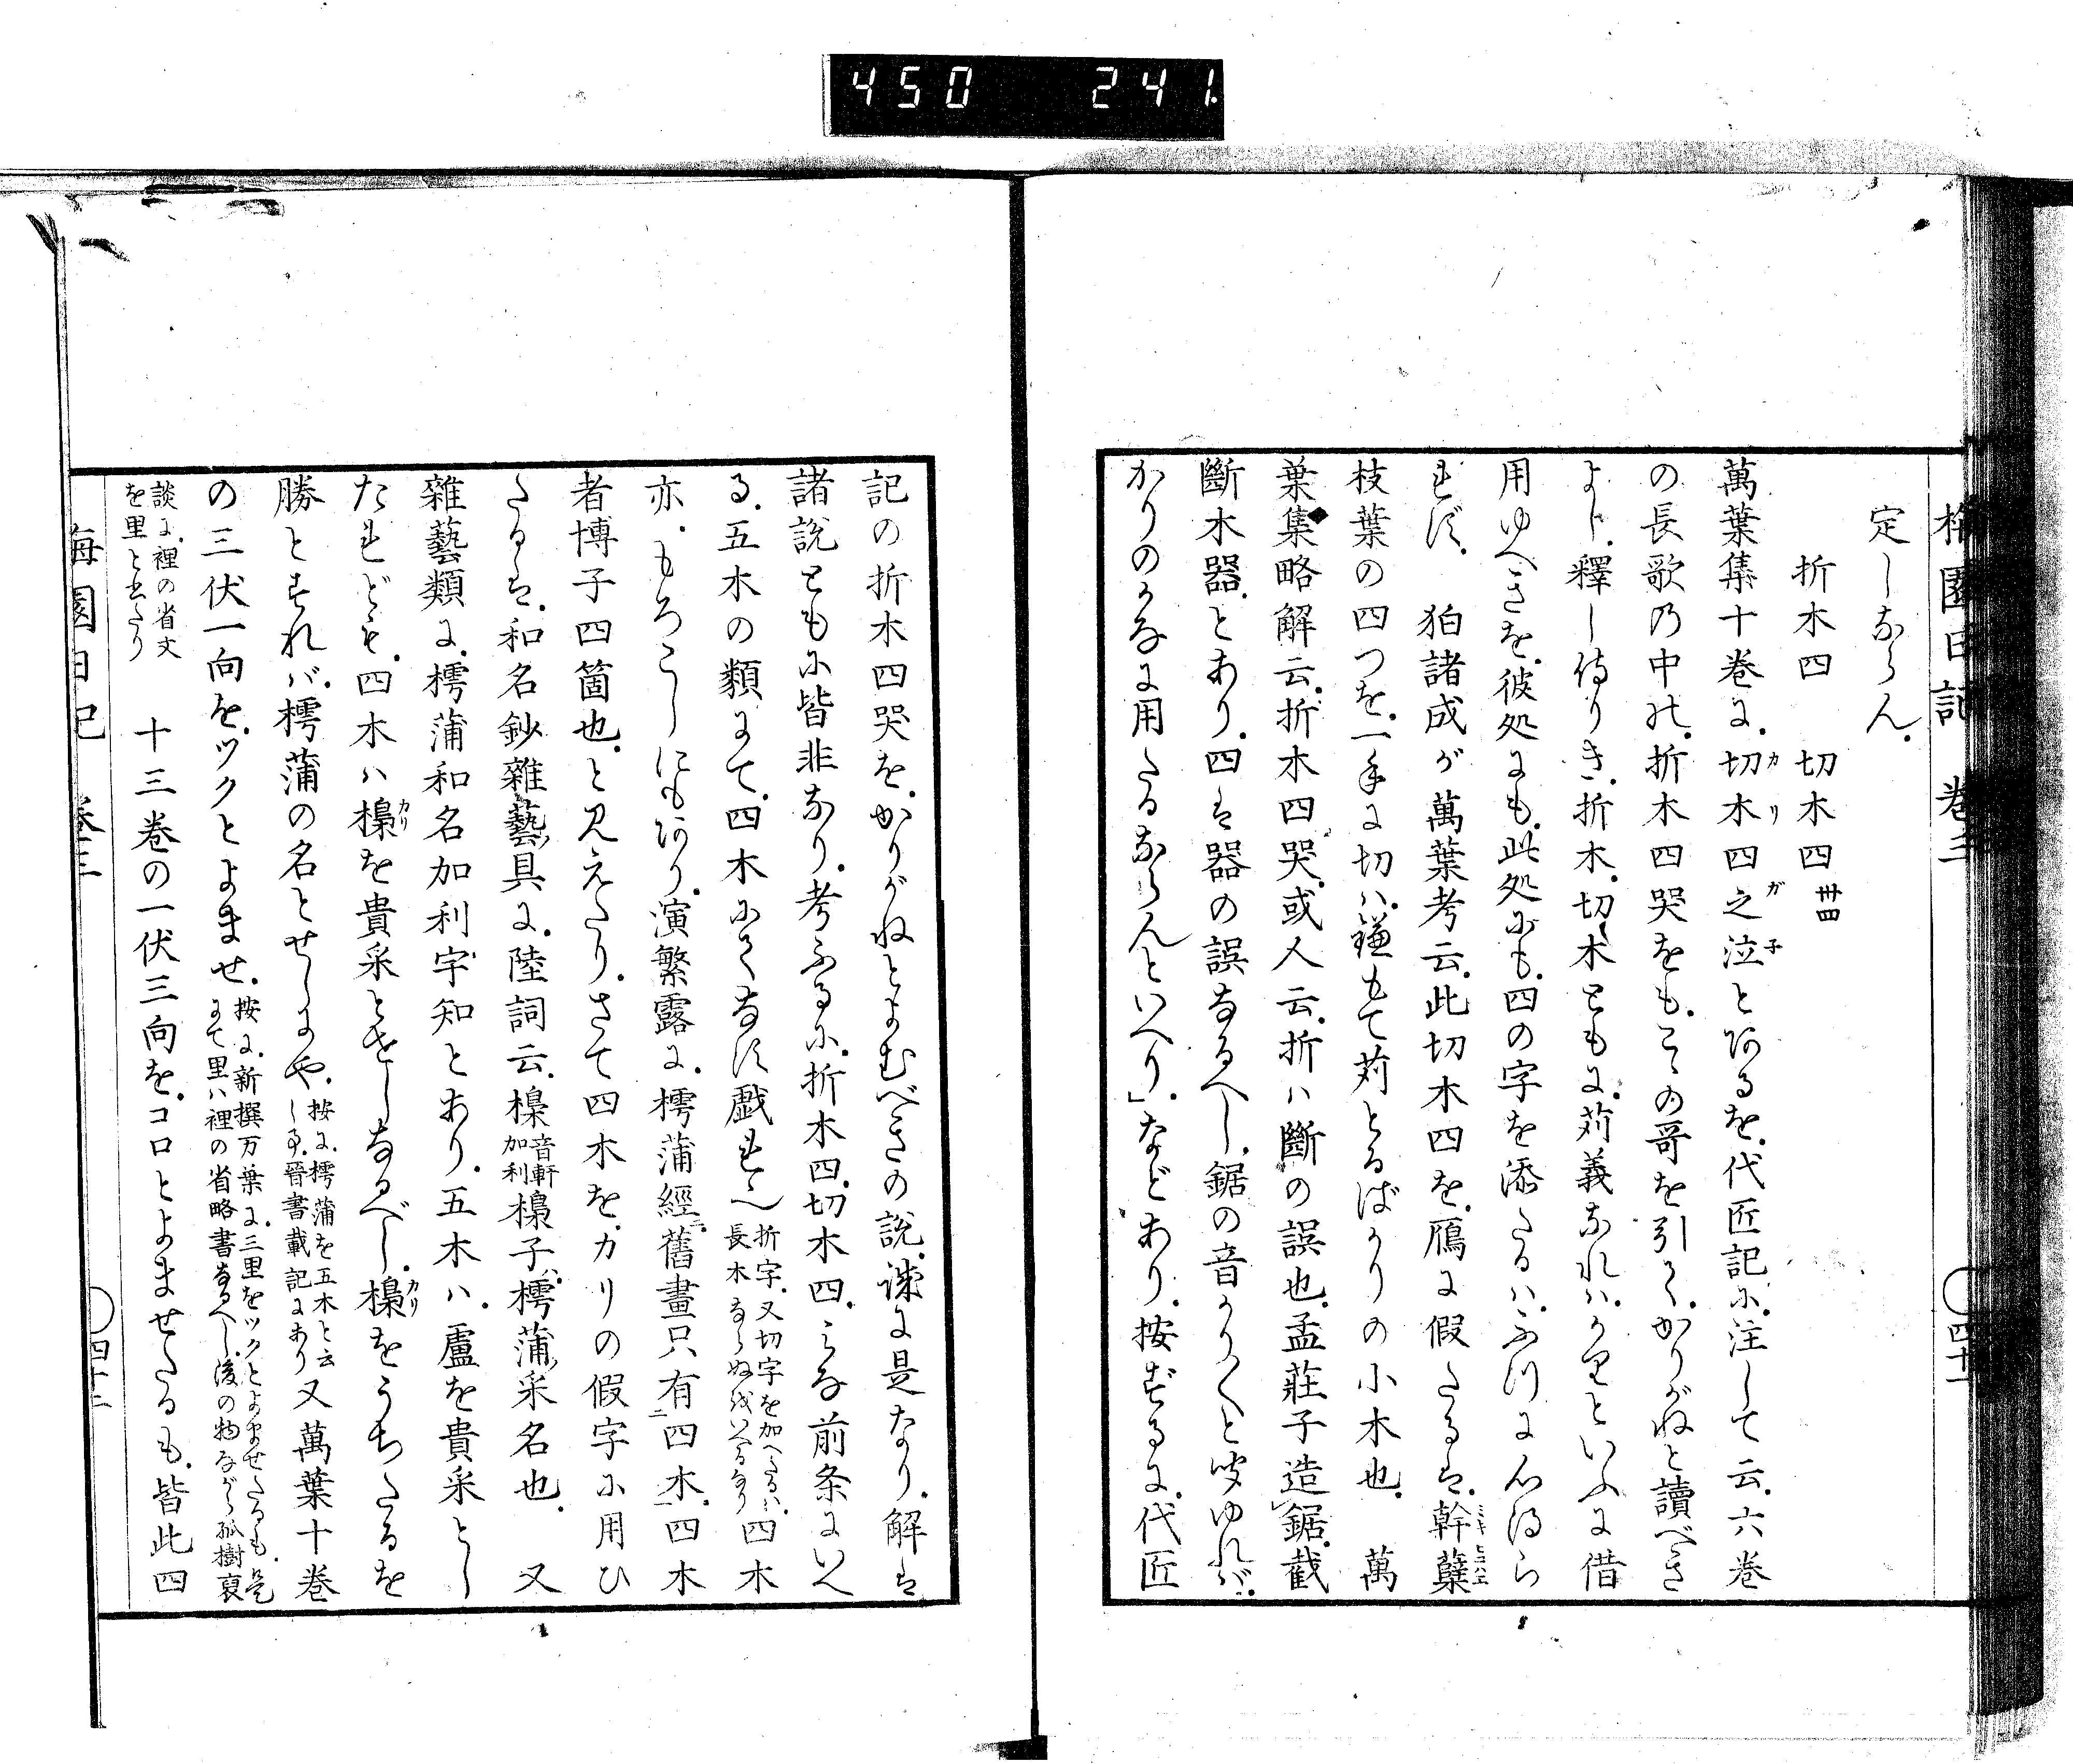 450 241
梅園日記 巻三
定しならん.
折木四 切木四 卅四
萬葉集十巻に.切木四之泣とあるを.代匠記に.注して云.六巻
の長歌の中に.折木四哭をも.こゝの哥を引て.かりがねと讀べき
よし.釋し侍りき.折木.切木ともに.苅義なれハ.かりといふに借
用ゆへきを.彼処にも.此処にも.四の字を添たるハ.
れず. 狛諸成が萬葉考云.此切木四を.鴈に假たるは.幹蘖
枝葉の四つを.一手に切ハ.鎌もて苅とるばかりの小木也. 萬
葉集略解云.折木四哭.或人云.折ハ斷の誤也.孟莊子造鋸.截
斷木器.とあり.四は器の誤なるへし.鋸の音かり〳〵と聞ゆれバ.
かりのかなに用たるならんといへり」.などあり.按ずるに.代匠
記の折木四哭を.かりがねとよむべきの説.誠に是なり.解は
諸説ともに皆非なり.考ふるに.折木四.切木四.みな前条にいへ
る.五木の類にて.四木にてなす戯れ也 折字.又切字を加へたるハ.長木ならぬをいへるなり 四木
亦.もろこしにもあり.演繁露に.樗蒲經.舊畫只有四木.四木
者博子四箇也.と見えたり.さて四木を.カリの假字に用ひ
たるは.和名鈔雜藝具に.陸詞云.梟 音軒加利 梟子.樗蒲采名也. 又
雜藝類に.樗蒲和名加利宇知とあり.五木ハ.盧を貴采とし
たれども.四木ハ梟を貴采とせしなるべし.梟をうちたるを
勝とすれバ.樗蒲の名とせしにや. 按に.樗蒲を五木と云し事.晉書載記にあり 又萬葉十巻
の三伏一向を.ツクとよませ. 按に.新撰万葉に.三里をツクとよませたるも.是にて里ハ裡の省略書なるへし.後の物ながら孤樹裒
談に.裡の省文を里と書たり 十三巻の一伏三向を.コロとよませたるも.皆此四
梅園日記 巻三